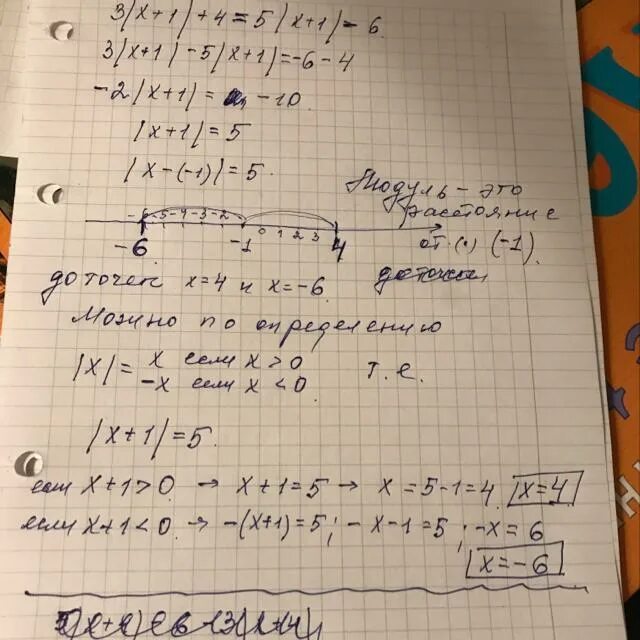 3|x+1|+4=5|x+1|-6
3|x+1|-5|x+1|=-6-4
-2|x+1|= -10
|x+1|=5
|x-(-1)|=5
Модуль - это
расстояние
от (•) (-1).
-6 -5 -4 -3 -2 0 1 2 3
-6 -1 4
до точек x=4 и x=-6
Можно по определению
|x|= x если x>0
-x если x<0
т.е.
|x+1|=5.
если x+1>0 → x+1=5 → x=5-1=4. x=4
если x+1<0. → -(x+1)=5; -x-1=5; -x=6
x=-6